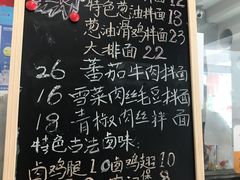 特色葱油拌面12
葱油滑鸡拌面23
大排面22
26 蕃茄牛肉拌面
16 雪菜肉丝毛豆拌面
18 青椒肉丝拌面
特色古法卤味:
卤鸡腿10卤鸡翅10